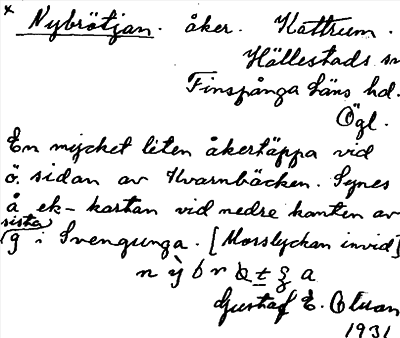 × Nybrötjan. åker. Kattrum.
Hällestads sn
Finspånga läns hd.
Ögl.
En mycket liten åkertäppa vid
ö. sidan av Kvarnbäcken. Synes
å ek-kartan vid nedre kanten av
sista
g i Svengunga. [Morslyckan invid]
Gustaf E.
1931